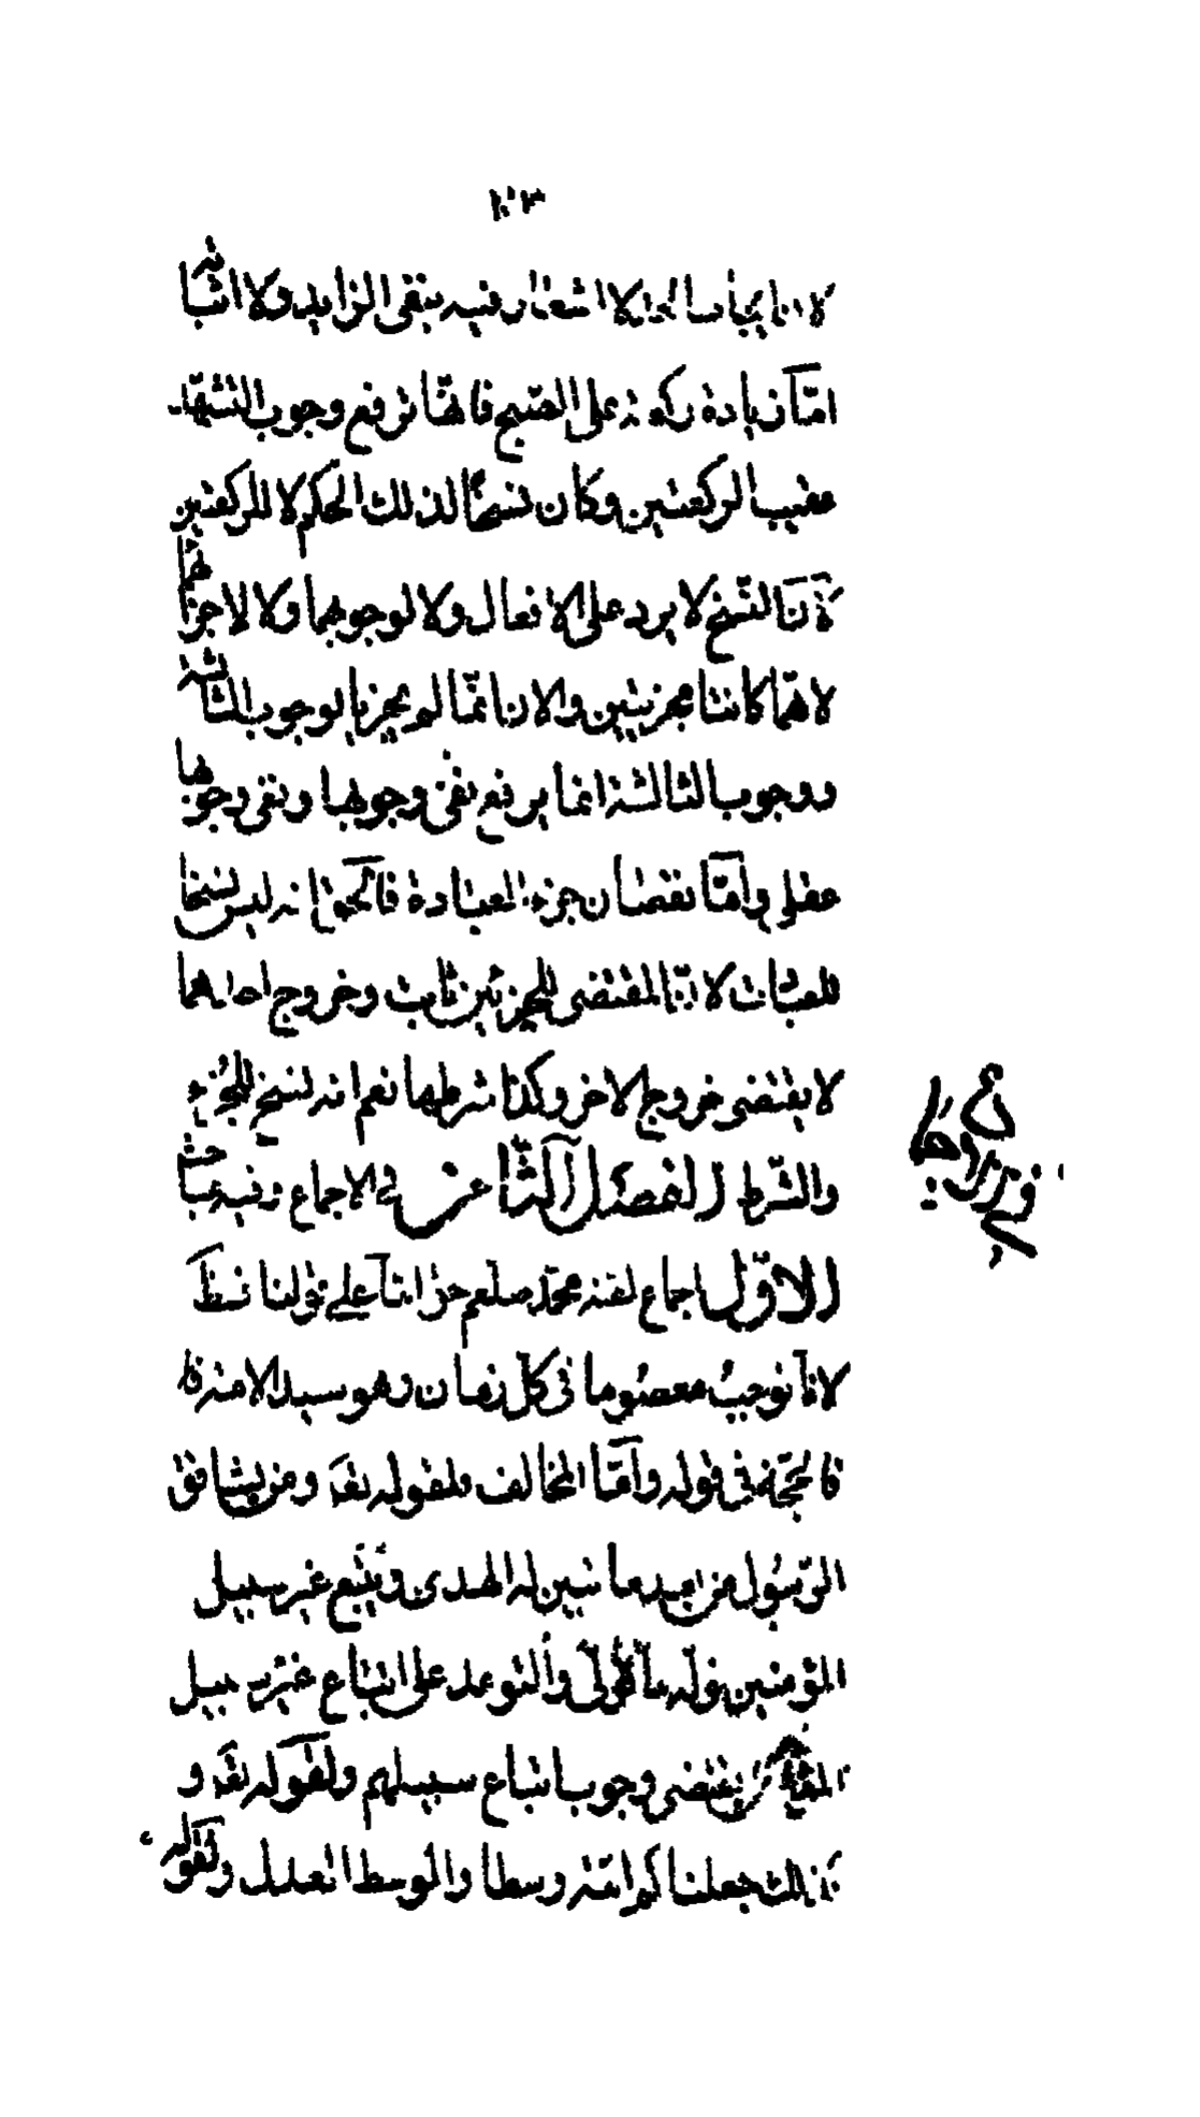 ١٠٣
لان ايجاب الحد لا اشعار فيه بنفى الزايد ولا اثباته
امّا زيادة ركعة على الصّبح فانهّا ترفع وجوب التشهد
عقيب الركعتين وكان نسخًا لذلك الحكم لا للركعتين
لأنّ النّسخ لا يرد على الافعال ولا لوجوبهما ولا لاجزائهما
لانهّما كانتا مجزيتين والان انمّا لم يجزيا لوجوب الثالثة
ووجوب الثالثة انما يرفع نفى وجوبها ونفى وجوبها
عقلى وامّا نقصان جزء العبادة فالحق انه ليس نسخا
للعبادت لانّ المقتضى للجزئين ثابت وخروج احدهما
لا يقتضى خروج الاخر وكذا شرطها نعم انه نسخ للجزء
والشّرط الفصل الثّامن في الاجماع وفيه مباحث
الاوّل اجماع امة محمّد صلعم حق امّا على قولنا فظ
لانّا نوجب معصوما فى كلّ زمان وهو سيد الامة
فالحجّة فى قوله وامّا المخالف فلقوله تع ومن يشاقق
الرّسول من بعد ما تبين له الهدى ويتّبع غير سبيل
المؤمنين نولّه ما تولّى والتوعد على اتباع غير سبيل
المؤمنين يقتضى وجوب اتباع سبيلهم ولقوله تع و
كذلك جعلناكم امّة وسطا والوسط العدل ولقوله